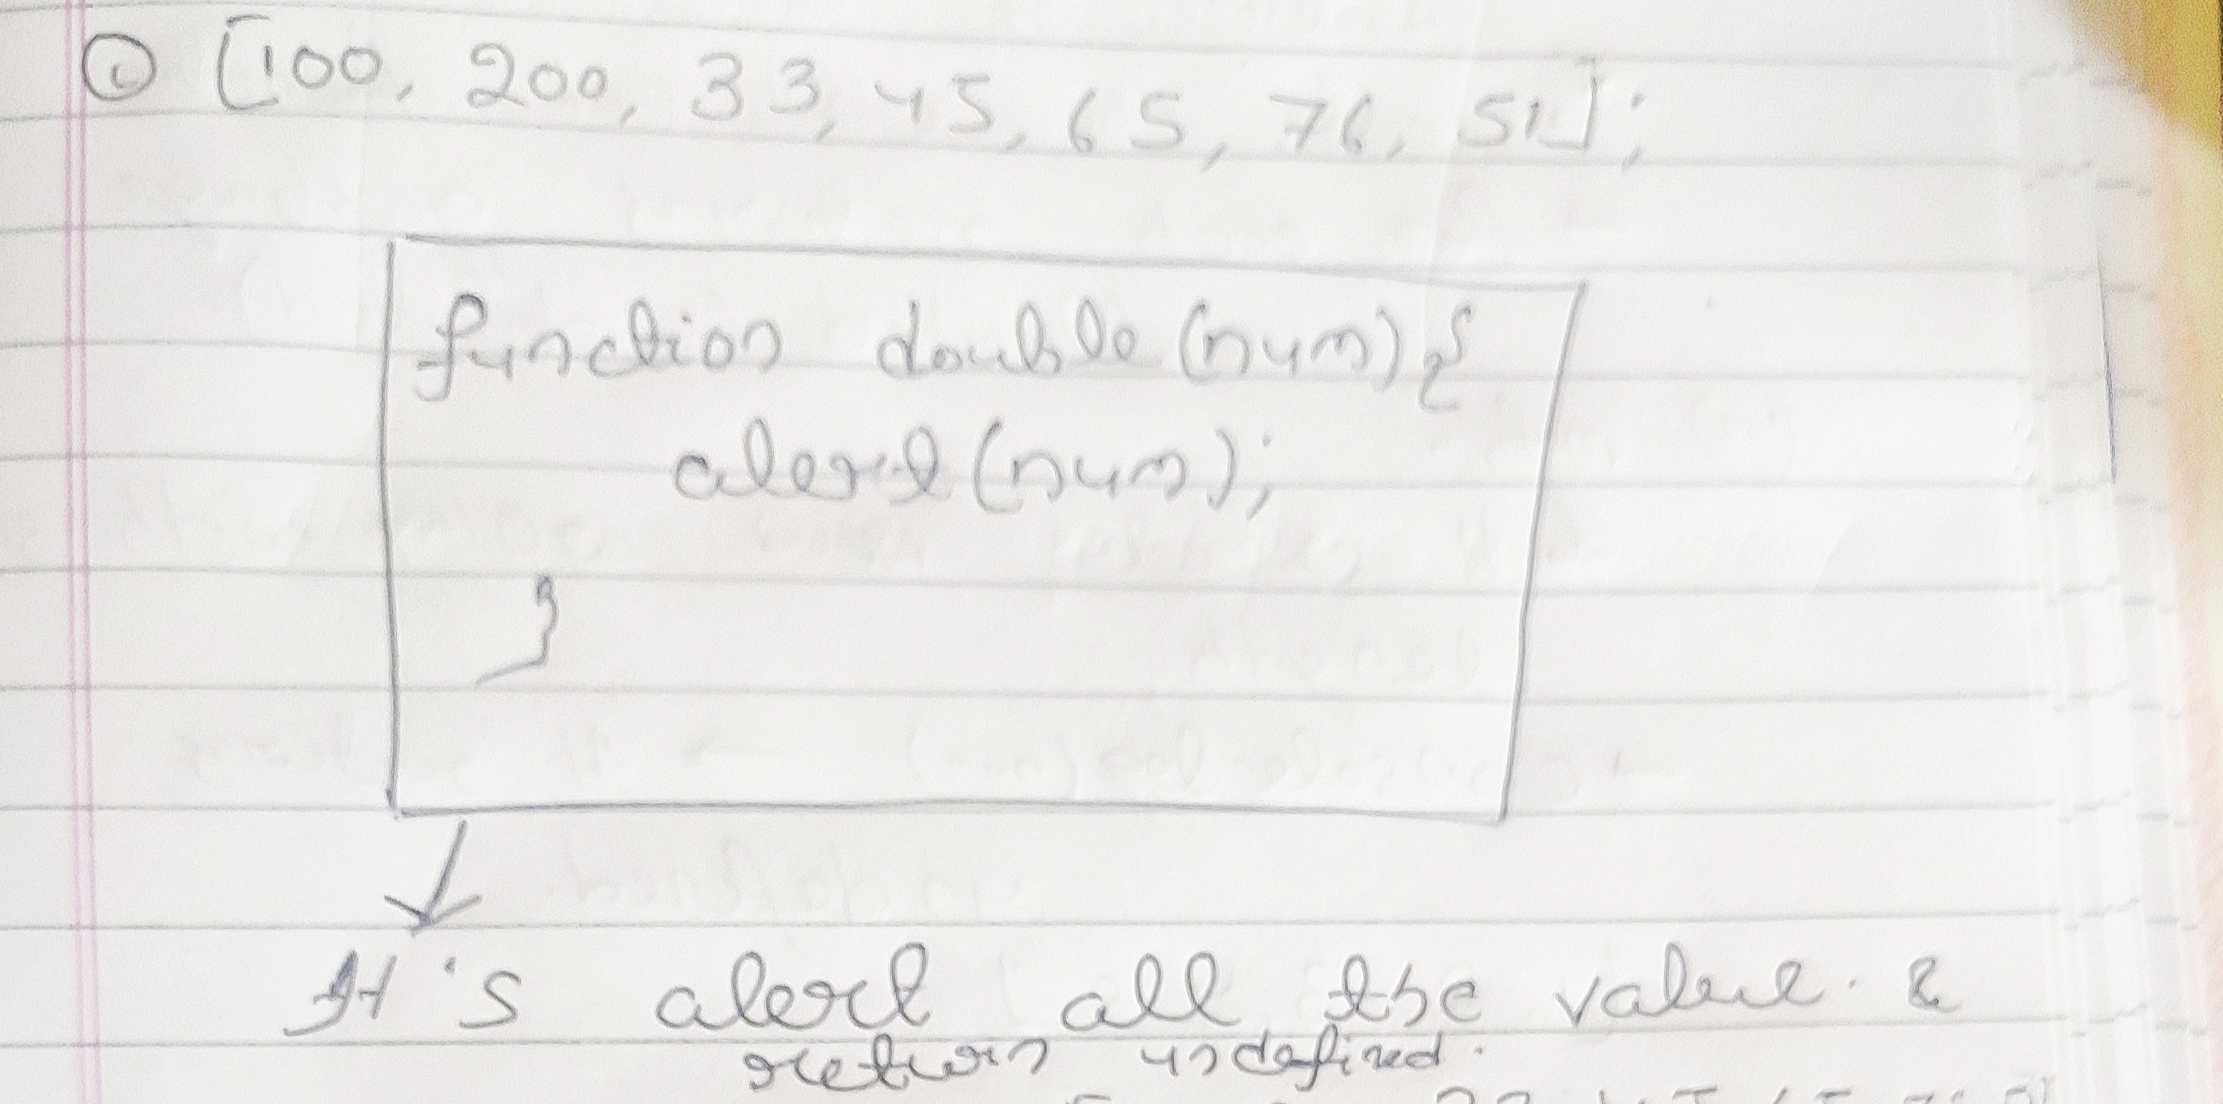 ① [100, 200, 33, 45, 65, 76, 51];
function double (num) {
alert (num);
}
It's alert all the value. &
return undefined.